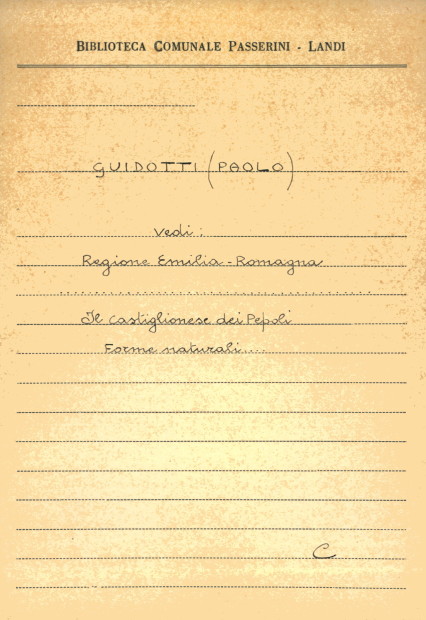 BIBLIOTECA COMUNALE PASSERINI - LANDI
GUIDOTTI (PAOLO)
Vedi:
Regione Emilia-Romagna
Il Castiglionese dei Pepoli
Forme naturali....
C